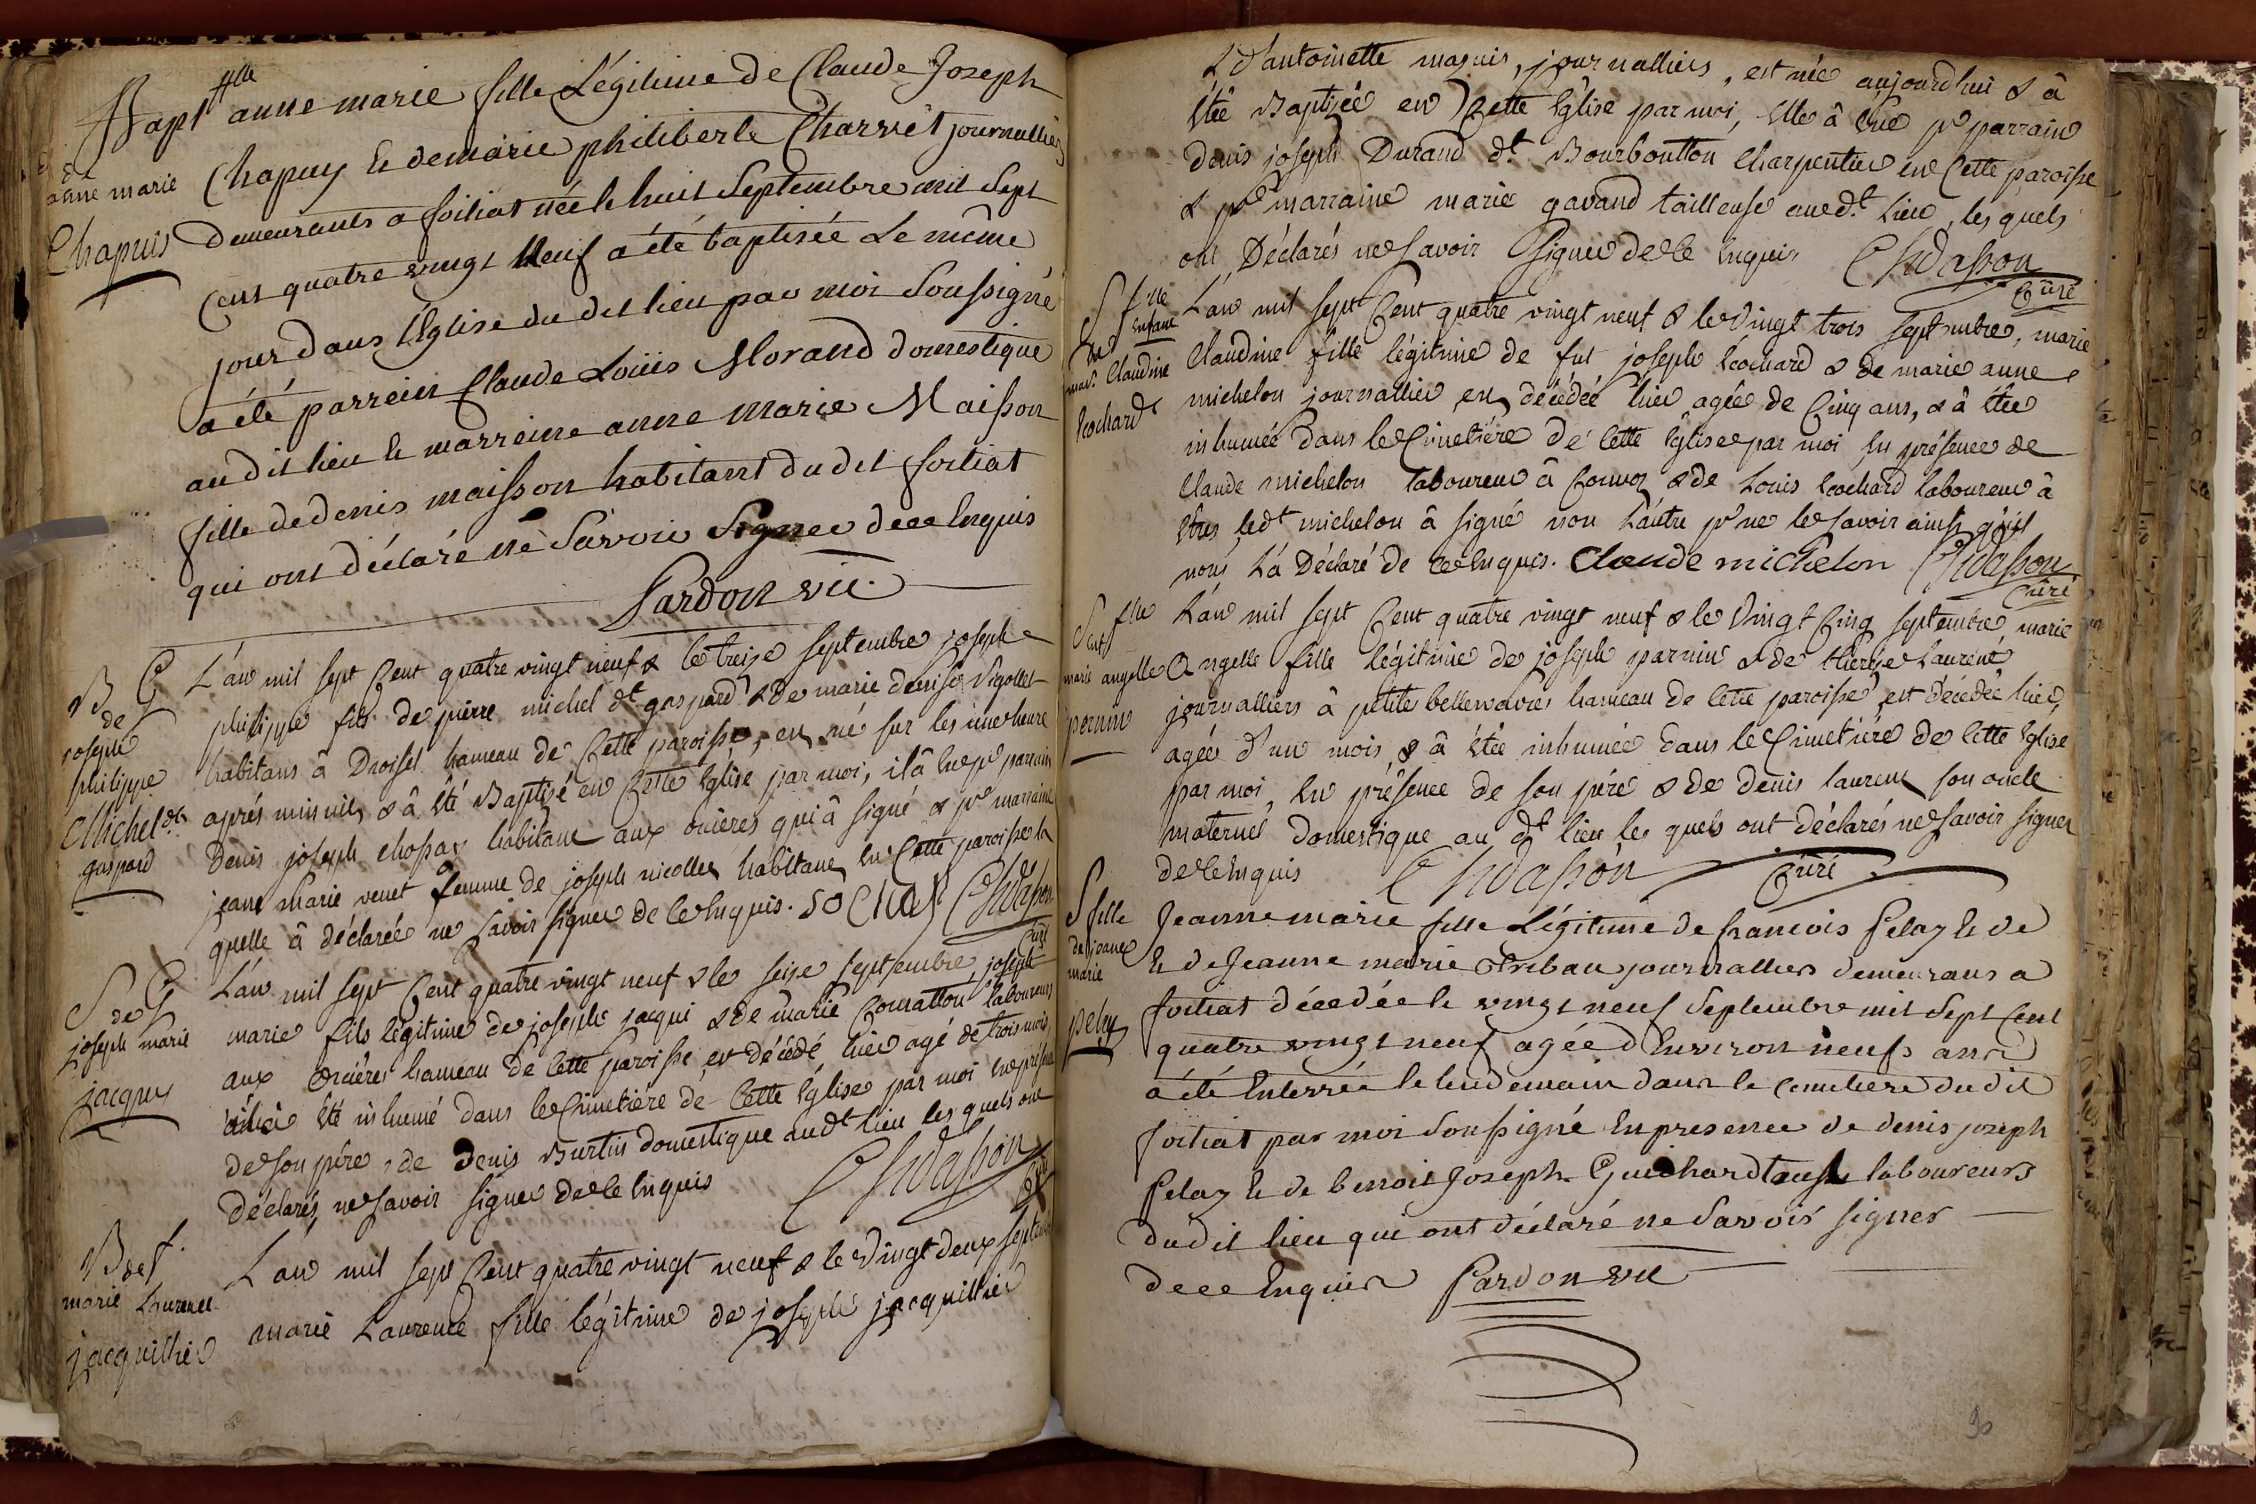 Bapt flle
de
anne marie
Chapuis
anne marie fille Légitime de Claude Joseph
Chapuy & de marie philiberte Charvet journalliers
demeurants a foitiat née le huit Septembre mil Sept
Cent quatre vingt Neuf a été baptisée Le même
jour dans L'Eglise du dit lieu par moi Soussigné
a été parrein Claude Loüis Morand domestique
au dit lieu & marreine anne marie Maisson
fille de denis maisson habitant du dit foitiat
qui ont déclaré ne Savoir Signer de ce Enquis
Pardon vic.
B G
de
joseph
philippe
Michel dt
gaspard
L'an mil sept Cent quatre vingt neuf & le treize septembre joseph
philippe fils de pierre michel dt gaspard & de marie denise Vigollet
habitans à Droisel hameau de Cette paroisse, est né sur les une heure
aprés minuit & à été Baptizé en Cette Eglise par moi, il â Eu pr parrain
Denis joseph chossat habitant aux oricères qui â signé & pr marraine
jeane Marie venet femme de joseph nicollet habitant en Cette paroisse la
quelle â déclarée ne savoir signer de ce Enquis. Chdasson
Curé
S G
de
joseph marie
jacquy
L'an mil sept Cent quatre vingt neuf & le seise septembre, joseph
marie fils légitime de joseph jacqui & de marie Conratton laboureurs
aux oricères hameau de Cette Paroisse est décédé hier agé de trois mois,
& â été inhumé dans le Cimetière de Cette Eglise par moi En présence
de son père, de Denis Burtin domestique au dt lieu les quels ont
déclarés ne savoir signer de ce Enquis Chdasson
Curé
B de f.
marie Laurence
jacquillier
L'an mil sept Cent quatre vingt neuf & le Vingt deux septembre
marie Laurence fille légitime de joseph jacquillier
& d'antoinette masuis, journalliers, est née aujourdhui & â
étée Baptizée en Cette Eglise par moi, Elle â Eue pr parrain
denis joseph Durand dt Bourboutton Charpentier en Cette paroisse
& pr marraine marie gavand tailleuse au dt Lieu, les quels
ont Déclarés ne savoir Signer de ce Enquis Chdasson
Curé
S flle
Enfant
de
mar. Claudine
Ecochard
L'an mil sept Cent quatre vingt neuf & le Vingt trois septembre, marie
Claudine fille légitime de fut joseph Ecochard & de marie anne
michelon journallier est décédée hier agée de Cinq ans, & â étée
inhumée dans le Cimetière de Cette Eglise par moi En présence de
Claude michelon laboureur â Convoz & de Louis Ecochard laboureur â
ledt michelon â signé non L'autre pr ne le savoir ainsi qu'il
nous L'a Déclaré de ce Enquis. Claude michelon Chdasson
Curé
S flle
marie angelle
pernin
L'an mil sept Cent quatre vingt neuf & le Vingt Cinq septembre marie
Angelle fille légitime de joseph parnin & de therèse Laurent
journalliers â petite bellevavre hameau de Cette paroisse est décédée hier,
agée d'un mois, & â étée inhumée dans le Cimetière de Cette Eglise
par moi, En présence de son père & de denis laurent son oncle
maternel domestique au dt lieu les quels ont déclarés ne savoir signer
de ce Enquis Chdasson Curé
S fille
de jeane
marie
pelay
Jeanne marie fille Légitime de francois Pelay & de
& de Jeanne marie Tribau journalliers demeurans a
foitiat décedée le vingt neuf Septembre mil Sept Cent
quatre vingt neuf agée d'Environ neufs ans
a été Enterrée le lendemain dans le cemetière du dit
foitiat par moi Soussigné En presence de denis joseph
Pelay & de benoit Joseph Guichard tous laboureurs
du dit lieu qui ont déclaré ne Savoir signer
de ce Enquis Pardon vic
90